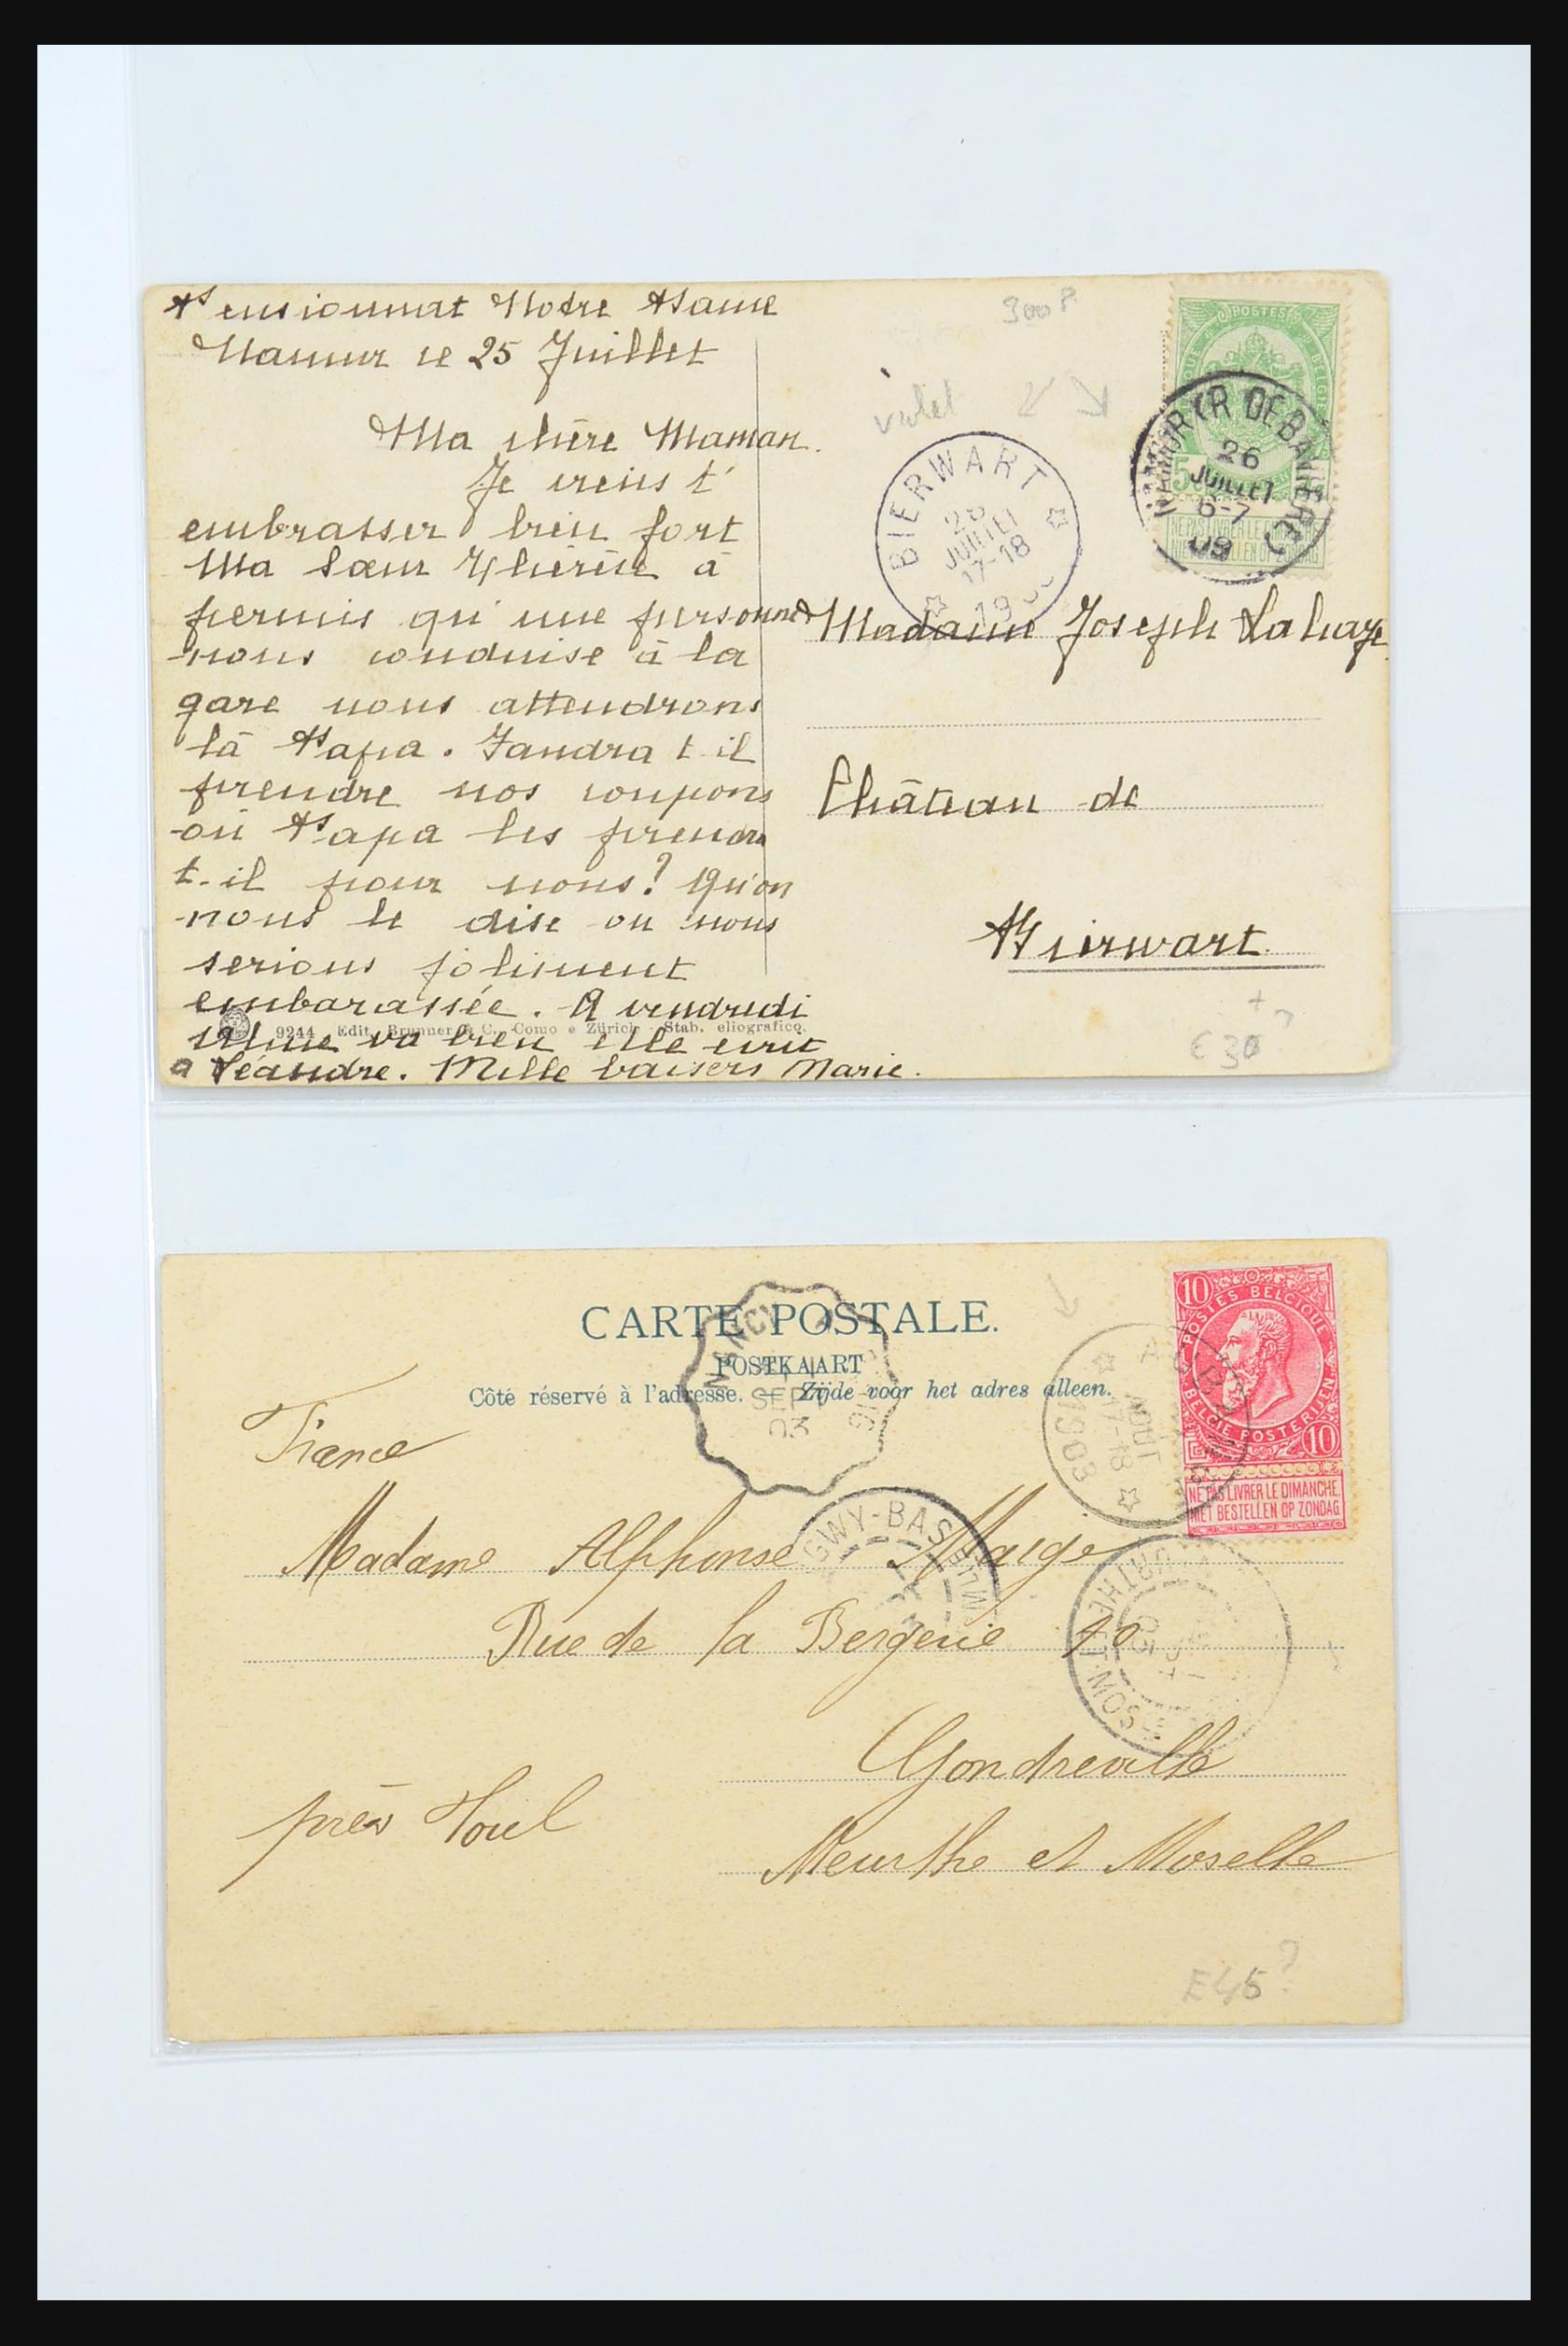 Pensionnat Notre Dame
Namur le 25 Juillet
Ma chère Maman.
Je viens t'
embrasser bien fort
Ma Sœur Thérèse à
permis qu'une personne
nous conduise à la
gare nous attendrons
là Papa. Faudra t-il
prendre nos coupons
ou Papa les prendra
t-il pour nous? Qu'on
nous le dise ou nous
serions joliment
embarassée. A vendredi
va bien elle écrit
a Léandre. Mille baisers Marie.
9244 Edit. Brunner & C., Como e Zürich - Stab. eliografico.
3000?
violet
POSTES
BELGIQUE
5
NE PAS LIVRER LE DIMANCHE
NIET BESTELLEN OP ZONDAG
NAMUR (R. DE BAVIERE)
26
JUILLET
6-7
09
BIERWART
26
JUILLET
17-18
19
Madame Joseph Lahaye
Château de
Bierwart.
+
€30?
CARTE POSTALE.
POSTKAART
Côté réservé à l'adresse. — Zijde voor het adres alleen.
10
POSTES BELGIQUE
BELGIE POSTERIJEN
10
NE PAS LIVRER LE DIMANCHE
NIET BESTELLEN OP ZONDAG
AOUT
17-18
1903
SEPT
03
GWY-BAS
MEURTHE-ET-MOSELLE
03
France
Madame Alphonse Maige
Rue de la Bergerie 10
Gondreville
près Toul
Meurthe et Moselle
E45?